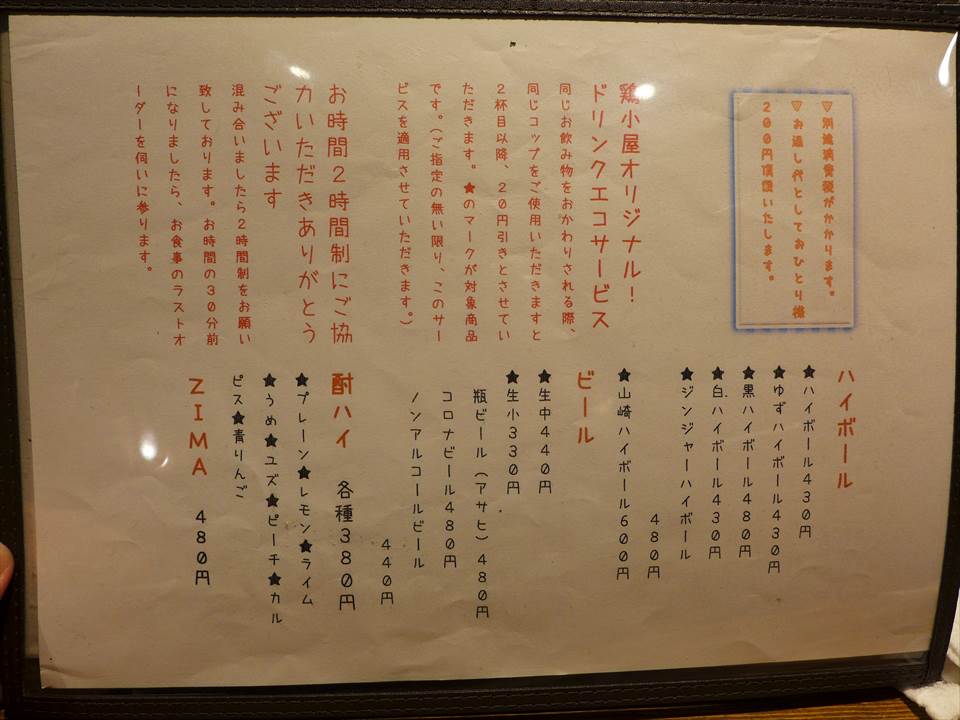 ▽別途消費税がかかります。
▽お通し代としておひとり様
200円頂戴いたします。
鶏小屋オリジナル！
ドリンクエコサービス
同じお飲み物をおかわりされる際、
同じコップをご使用いただきますと
2杯目以降、20円引きとさせてい
ただきます。★のマークが対象商品
です。（ご指定の無い限り、このサー
ビスを適用させていただきます。）
お時間2時間制にご協
力いただきありがとう
ございます
混み合いましたら2時間制をお願い
致しております。お時間の30分前
になりましたら、お食事のラストオ
ーダーを伺いに参ります。
ハイボール
★ハイボール430円
★ゆずハイボール430円
★黒ハイボール480円
★白ハイボール430円
★ジンジャーハイボール
480円
★山崎ハイボール600円
ビール
★生中440円
★生小330円
瓶ビール（アサヒ）480円
コロナビール480円
ノンアルコールビール
440円
酎ハイ 各種380円
★プレーン★レモン★ライム
★うめ★ユズ★ピーチ★カル
ピス★青りんご
ZIMA 480円